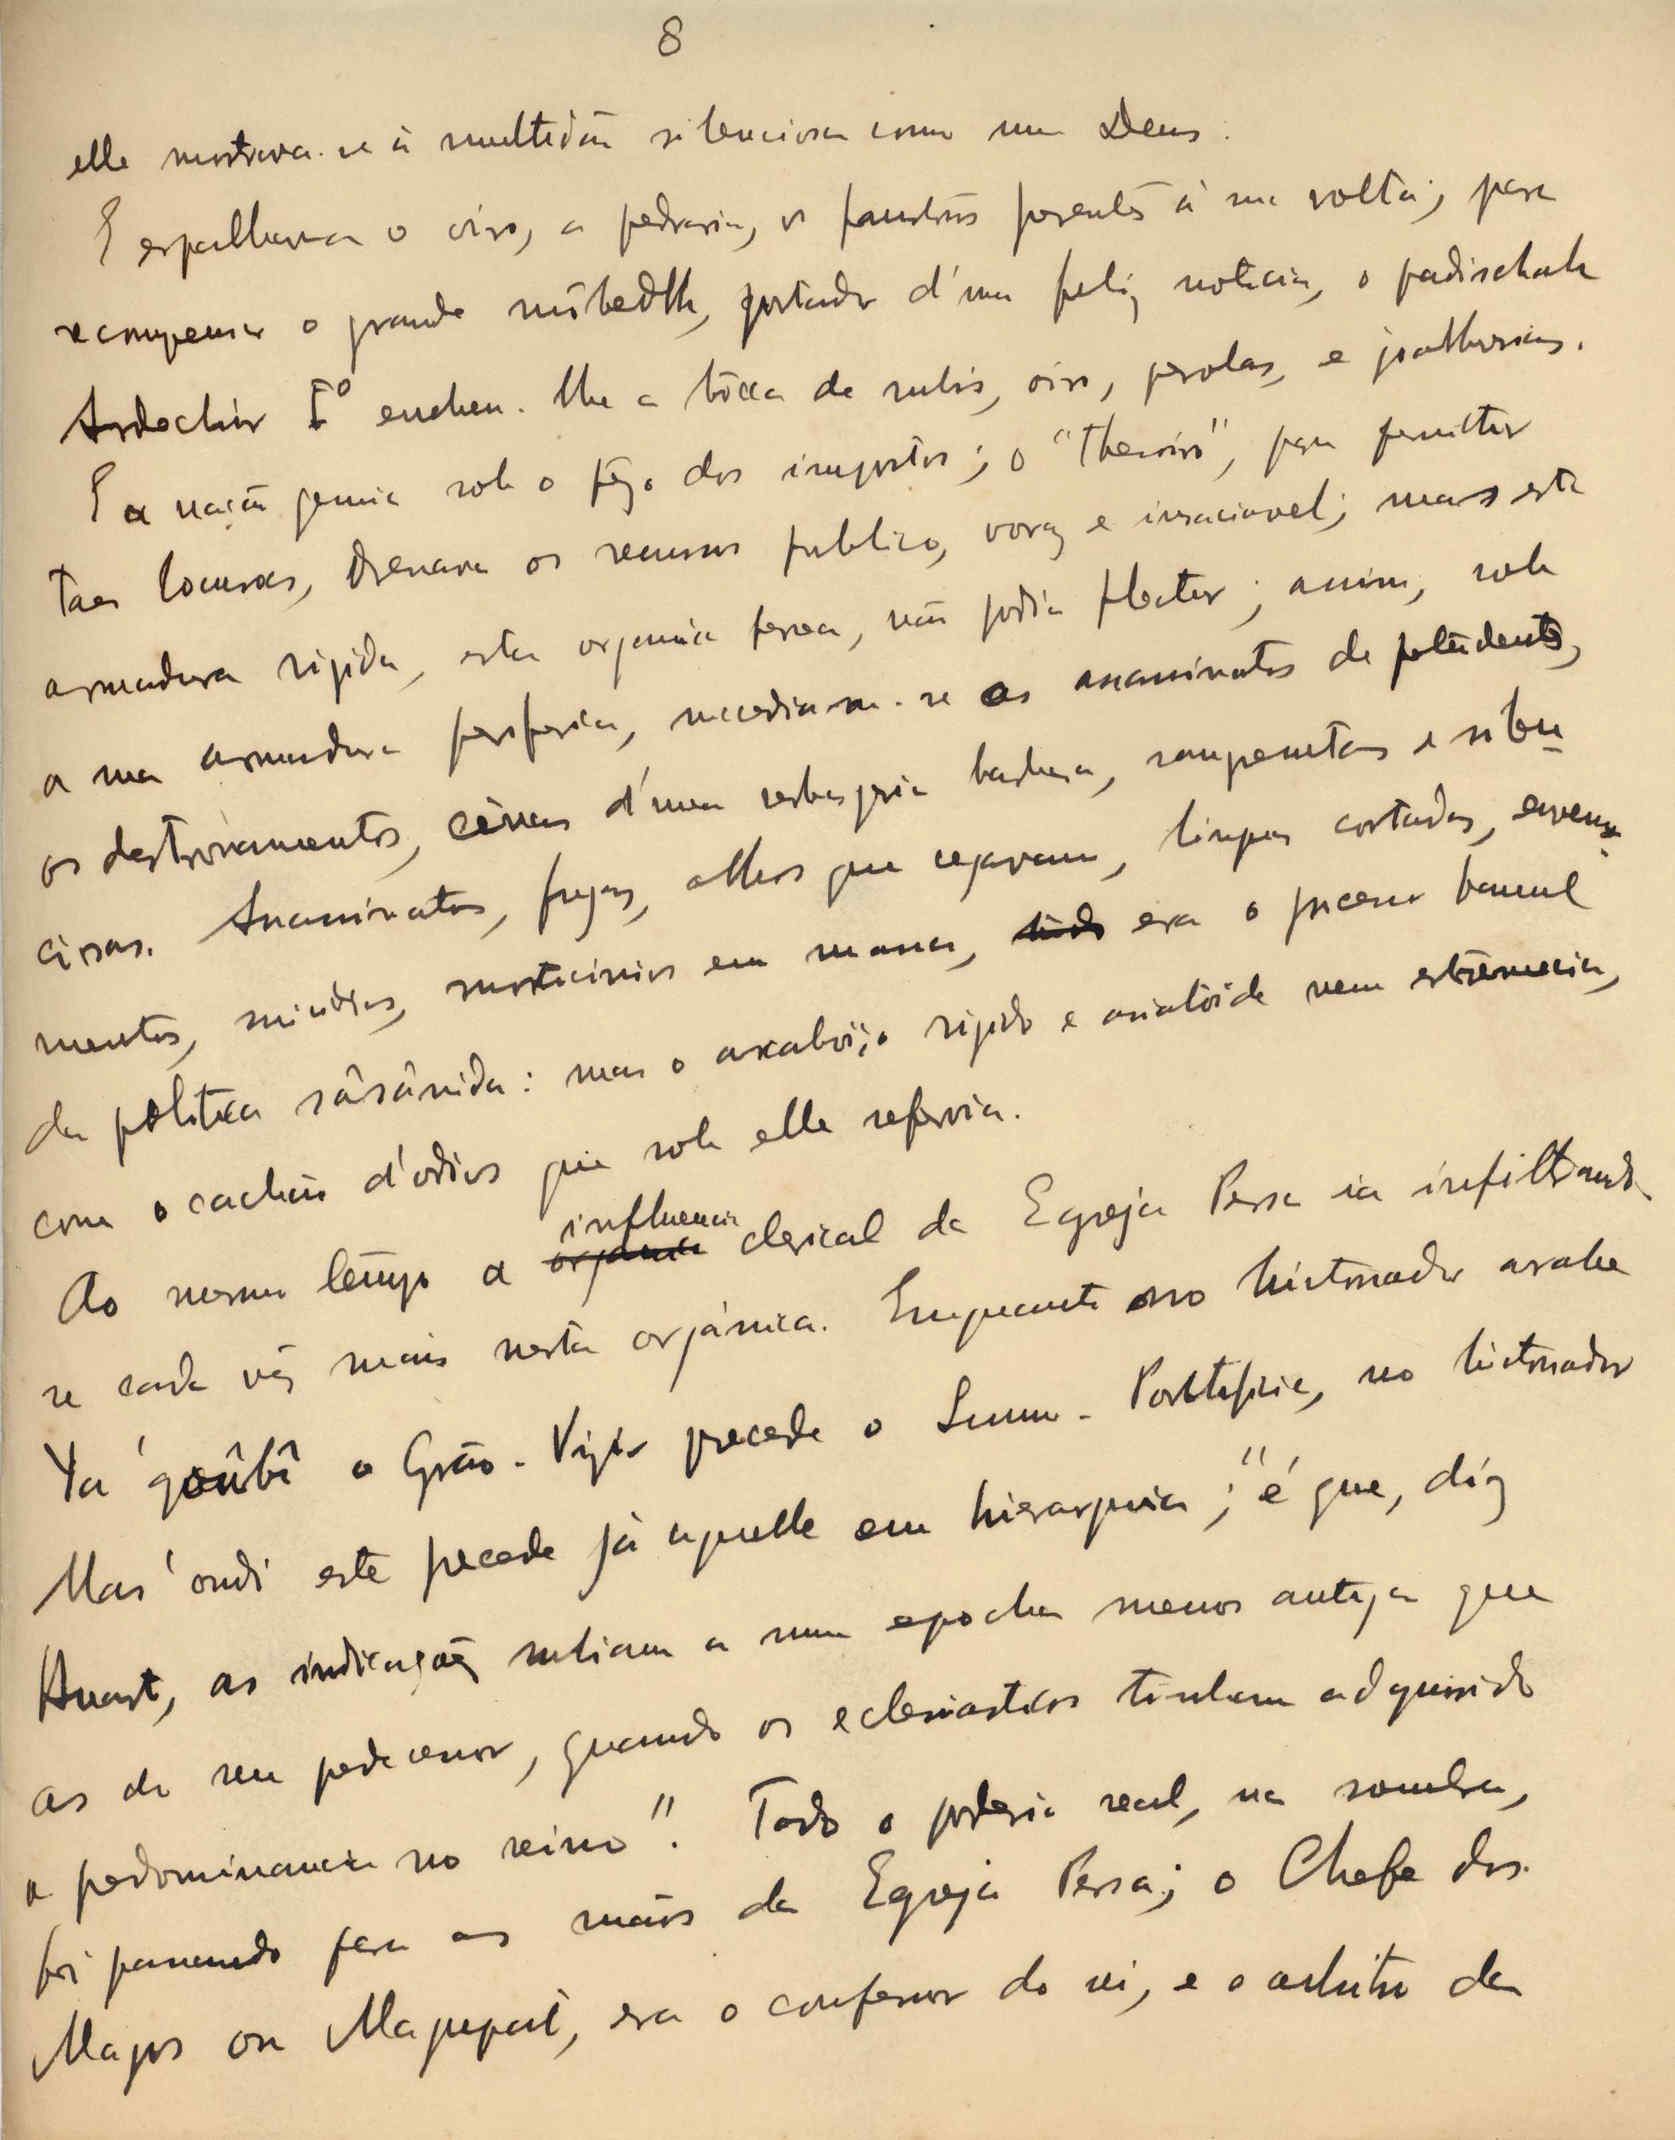 8
elle mostrava-se à multidão silenciosa como um Deus.
E espalhava o oiro, a pedraria, os faustosos presentes à sua volta; para
recompensar o grande mûbedth, portador d'uma feliz noticia, o padischah
Ardechir Iº encheu-lhe a bôcca de rubis, oiro, perolas, e joalherias.
E a nação gemia sob o pêzo dos impostos; o "thesoiro", para permittir
taes locuras, drenava os recursos publicos, voraz e insaciavel; mas esta
armadura rigida, esta organica ferrea, não podia flectir; assim, sob
a sua armadura periferica, succediam-se os assassinatos de pretendentes,
os destronamentos, cênas d'uma selvageria barbara, sangrentas e silen
ciosas. Assassinatos, fugas, olhos que cegavam, linguas cortadas, envena
mentos, incendios, morticinios em massa, era o processo banal
da politica sâsânida: mas o arcaboiço rigido e asiatoide nem estremecia,
com o cachão d'odios que sob elle refervia.
Ao mesmo tempo a influencia clerical da Egreja Persa ia infiltrando-
se cada vêz mais nesta orgánica. Emquanto no historiador arabe
Ya'qoûbî o Grão-Vizir precede o Summo-Pontifice, no historiador
Mas'oudi este precede já aquelle em hierarquia; "é que, díz
Huart, as indicações subiam a uma epocha menos antiga que
as do seu predecessor, quando os eclesiasticos tinham adquirido
a predominancia no reino". Todo o poderio real, na sombra,
foi passando para as mãos da Egreja Persa; o Chefe dos
Magos ou Magupat, era o confessor do rei, e o arbitro da